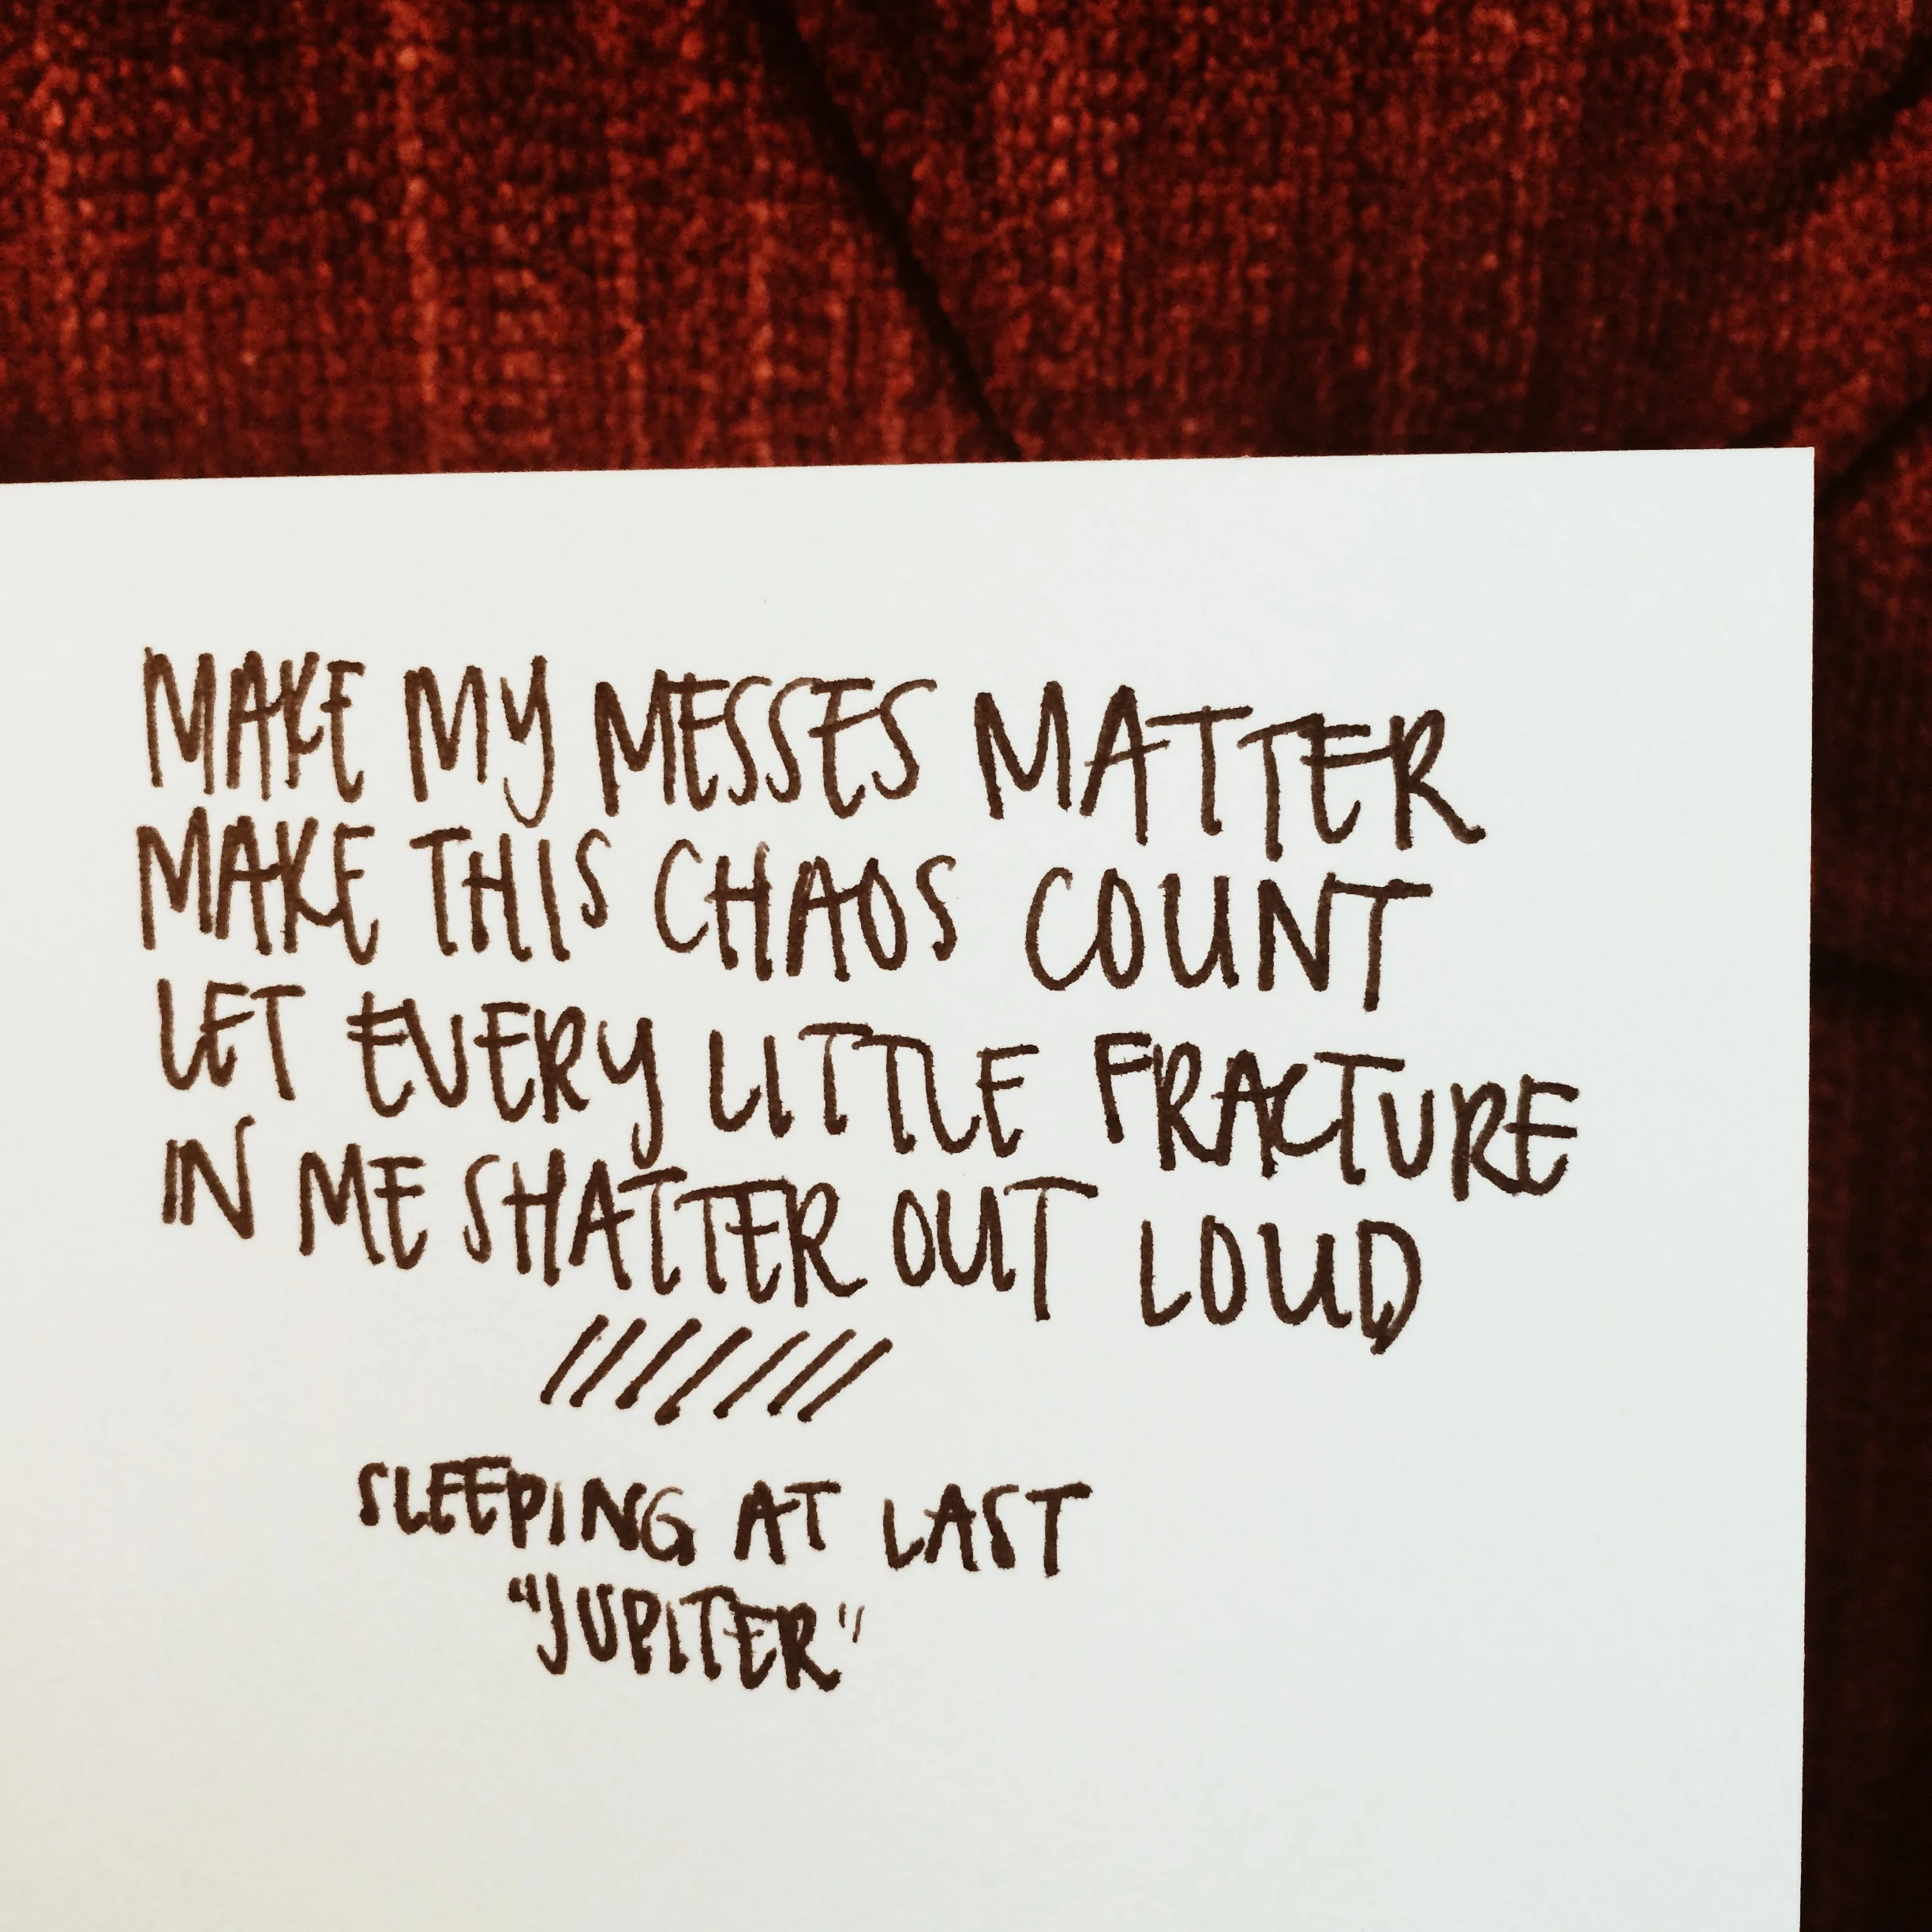 MAKE MY MESSES MATTER
MAKE THIS CHAOS COUNT
LET EVERY LITTLE FRACTURE
IN ME SHATTER OUT LOUD
////////
SLEEPING AT LAST
"JUPITER"